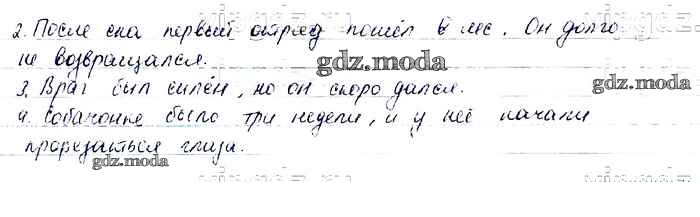 2. После сна первый отряд пошёл в лес. Он долго
не возвращался.
gdz.moda
3. Враг был силён, но он скоро сдался.
gdz.moda
4. Собачонке было три недели, и у неё начали
прорезаться глаза.
gdz.moda